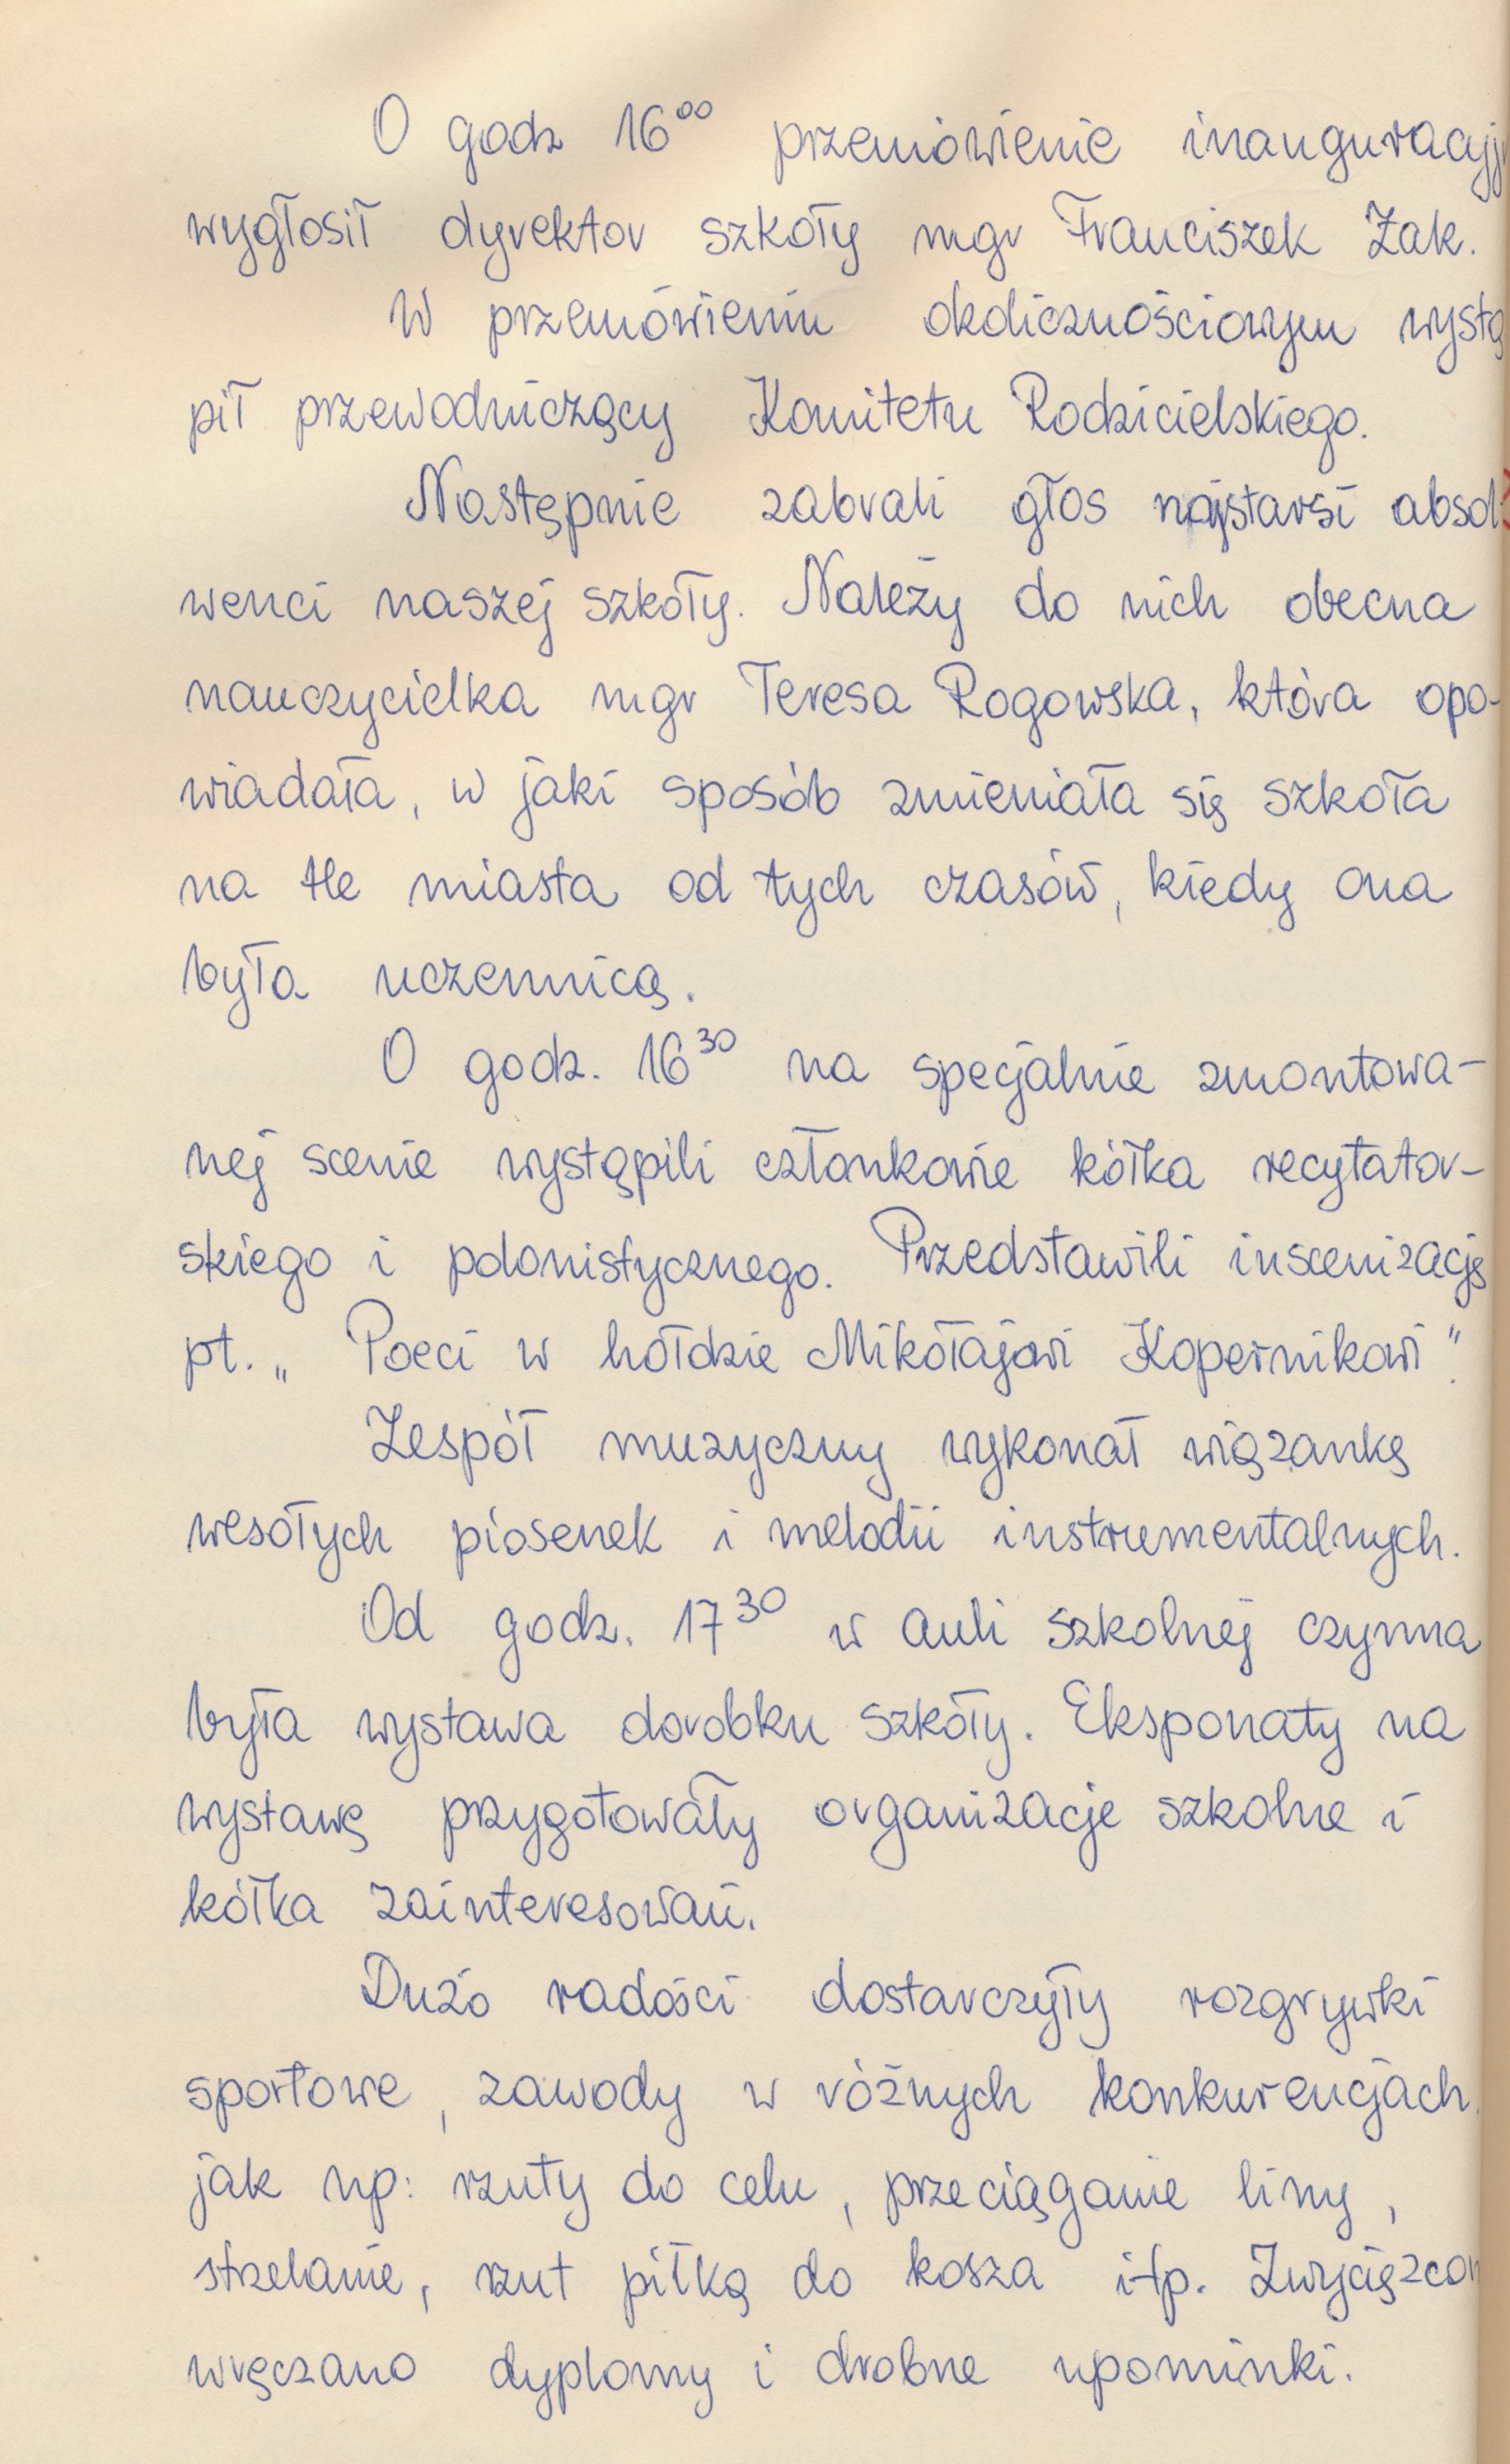 O godz 16⁰⁰ przemówienie inauguracyj
wygłosił dyrektor szkoły mgr Franciszek Żak.
W przemówieniu okolicznościowym wystą
pił przewodniczący Komitetu Rodzicielskiego.
Następnie zabrali głos najstarsi absol
wenci naszej szkoły. Należy do nich obecna
nauczycielka mgr Teresa Rogowska, która opo-
wiadała, w jaki sposób zmieniała się szkoła
na tle miasta od tych czasów, kiedy ona
była uczennicą.
O godz. 16³⁰ na specjalnie zmontowa-
nej scenie wystąpili członkowie kółka recytator-
skiego i polonistycznego. Przedstawili inscenizację
pt. „Poeci w hołdzie Mikołajowi Kopernikowi".
Zespół muzyczny wykonał wiązankę
wesołych piosenek i melodii instrumentalnych.
Od godz. 17³⁰ w auli szkolnej czynna
była wystawa dorobku szkoły. Eksponaty na
wystawę przygotowały organizacje szkolne i
kółka zainteresowań.
Dużo radości dostarczyły rozgrywki
sportowe, zawody w różnych konkurencjach,
jak np: rzuty do celu, przeciąganie liny,
strzelanie, rzut piłką do kosza itp. Zwycięzcom
wręczano dyplomy i drobne upominki.